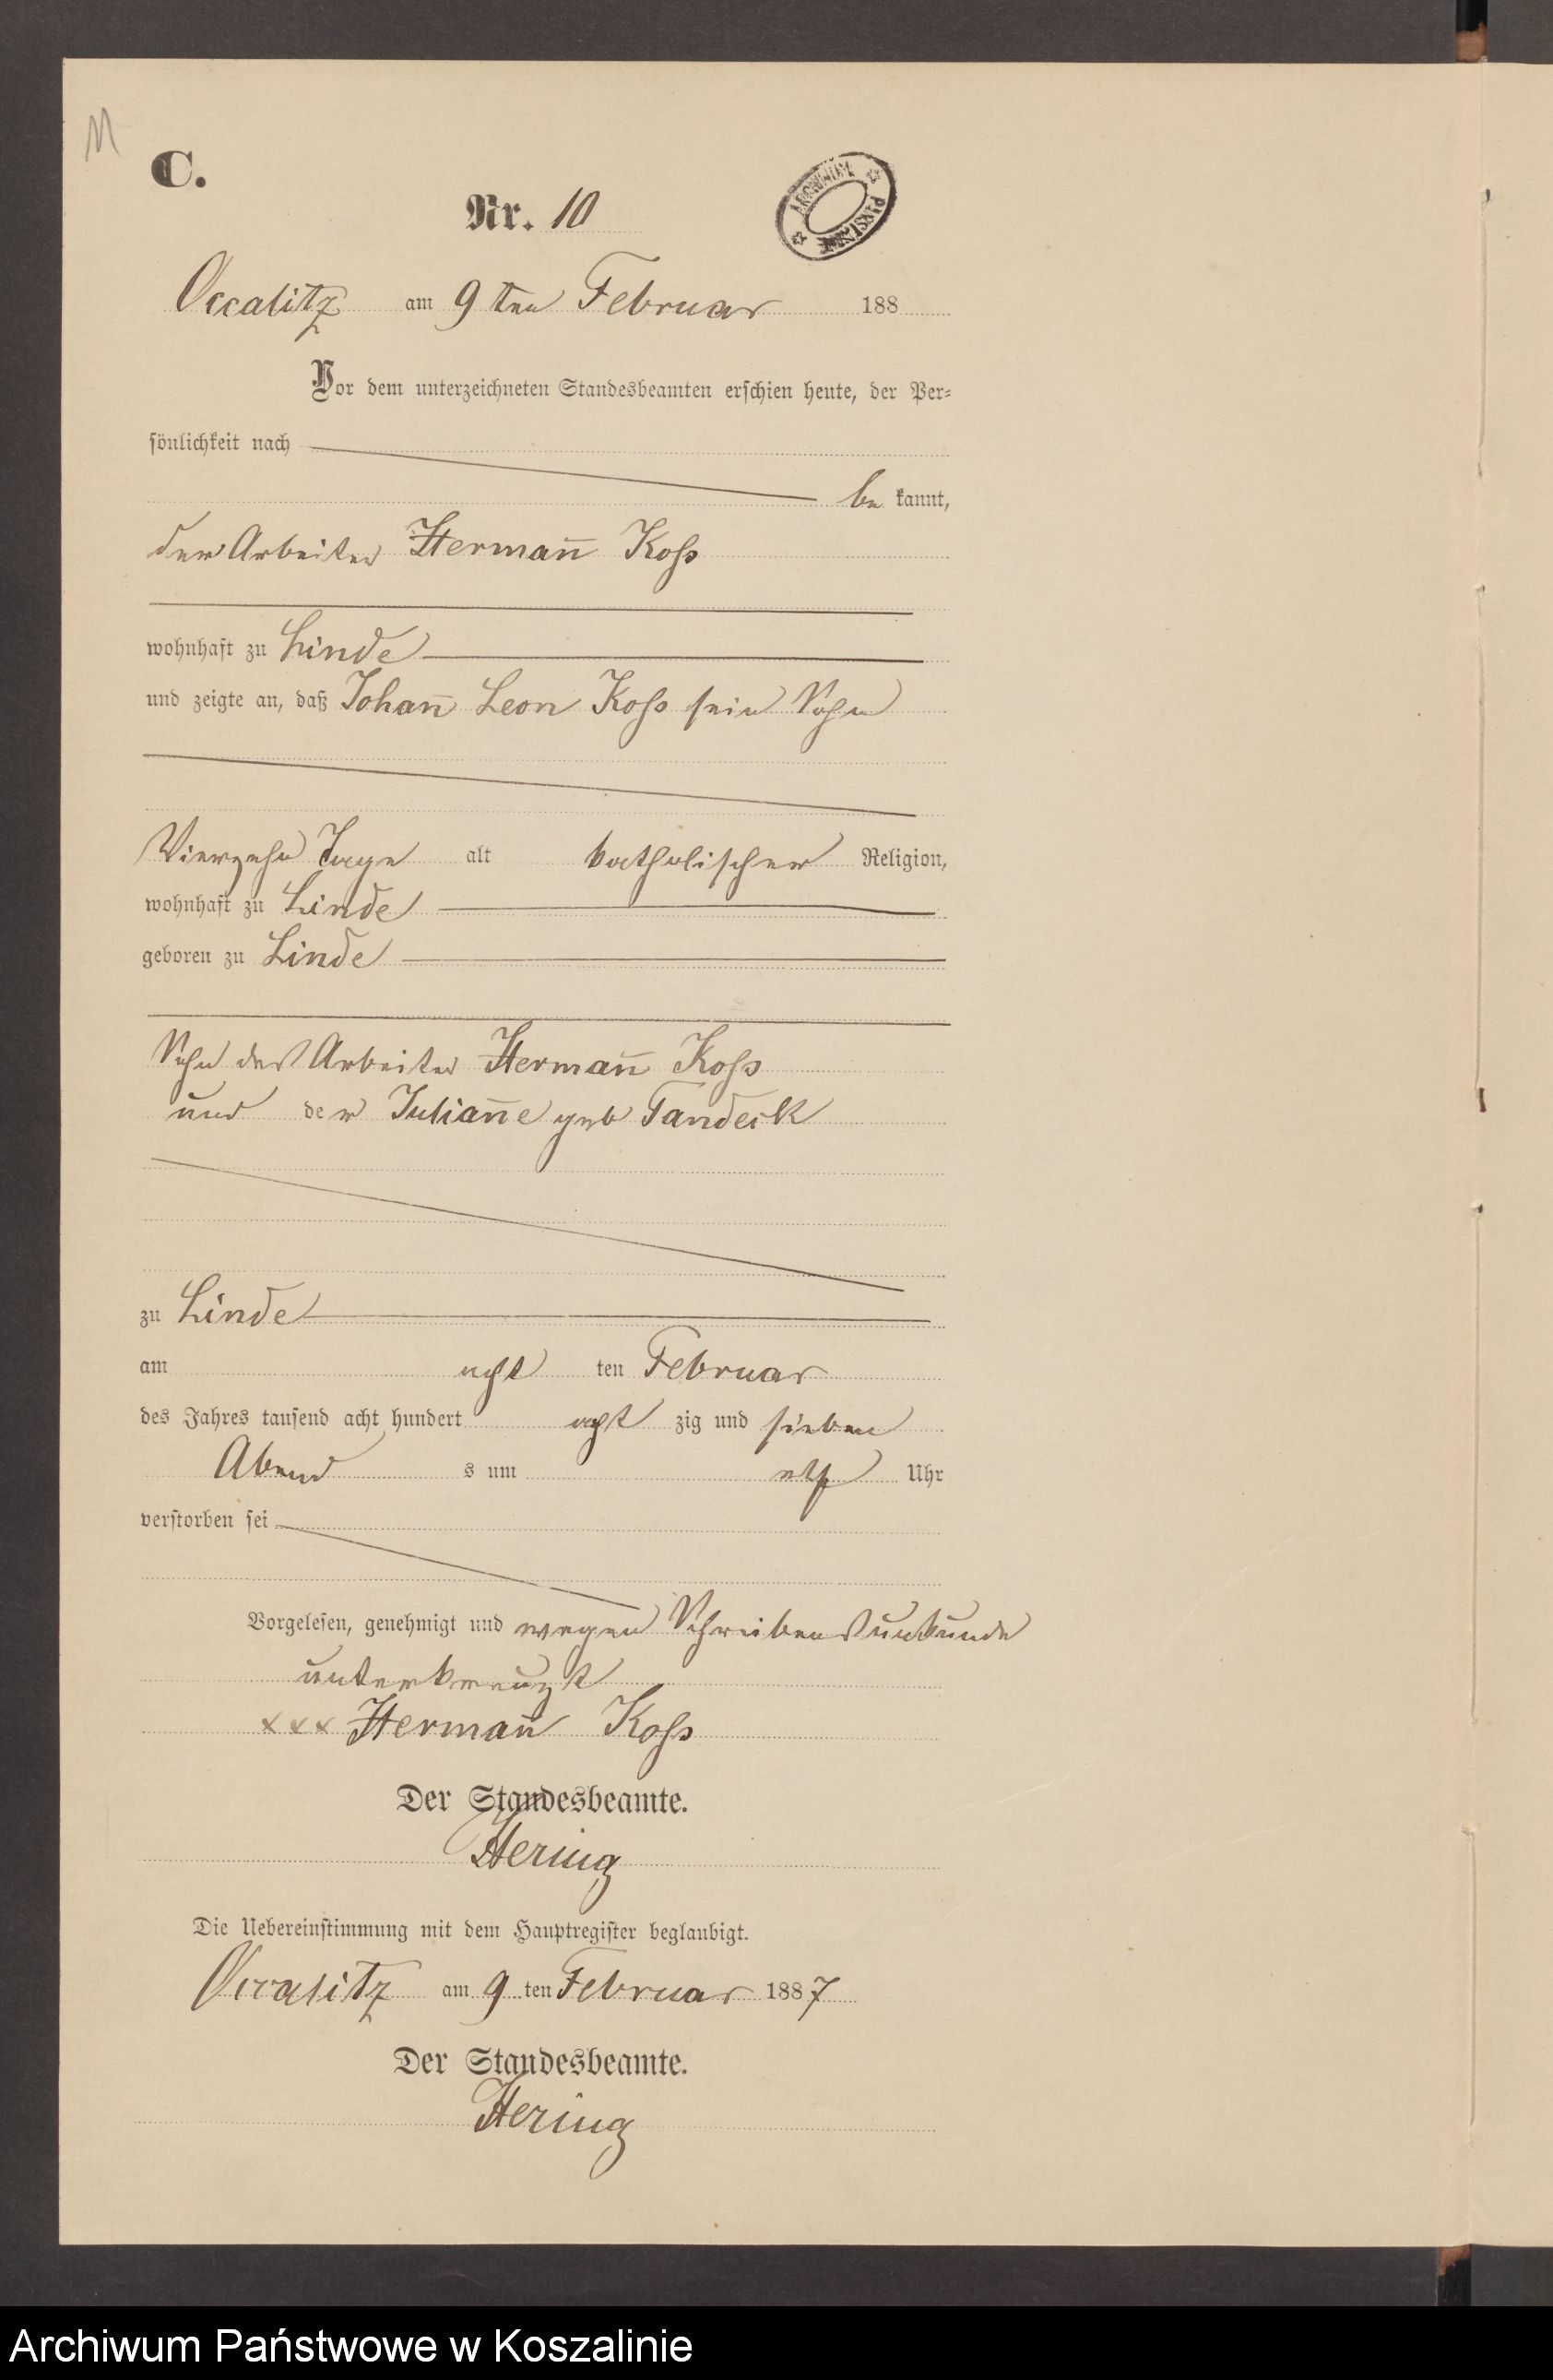 M
C.
Nr. 10
ARCHIWUM PAŃSTWOWE
Occalitz am 9 ten Februar 188
Vor dem unterzeichneten Standesbeamten erschien heute, der Per-
sönlichkeit nach
be kannt,
der Arbeiter Herman̄ Koss
wohnhaft zu Linde
und zeigte an, daß Johan̄ Leon Koss sein Sohn
Vierzehn Tage alt katholischer Religion,
wohnhaft zu Linde
geboren zu Linde
Sohn des Arbeiter Herman̄ Koss
und der Julian̄e geb Tandeck
zu Linde
am acht ten Februar
des Jahres tausend acht hundert acht zig und sieben
Abend s um elf Uhr
verstorben sei
Vorgelesen, genehmigt und wegen Schreibensunkunde
unterkreuzt
xxx Herman̄ Koss
Der Standesbeamte.
Hering
Die Uebereinstimmung mit dem Hauptregister beglaubigt.
Occalitz am 9 ten Februar 1887
Der Standesbeamte.
Hering
Archiwum Państwowe w Koszalinie